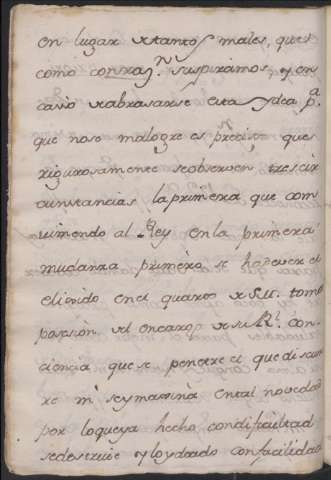 en lugar de tantos males, que
como con raz.ⁿ suspiramos, y en
caso de abrasarse esta ydea pª
que no se malogre es preciso que
rigurosamente se observen tres cir
cunstancias la primera que com
viniendo al Rey en la primera
mudanza primero se ha de ver el
elegido en el quarto de S.M. tome
posesion del encargo de su Rl. con
ciencia que se penetre el que discur
re mi seymassina en tal novedad
por lo que ya hecho con dificultad
se destruie y lo ydeado con facilidad